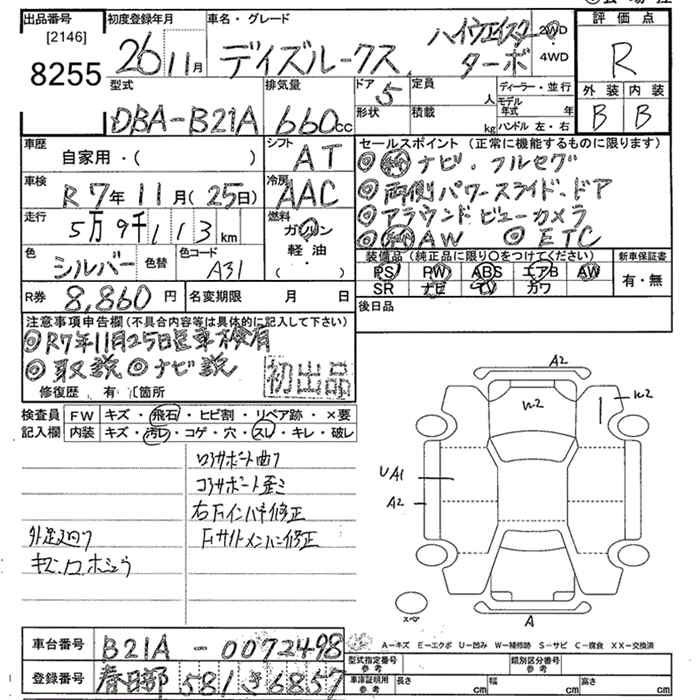 出品番号 初度登録年月 車名・グレード 評価点
[2146]
8255
26 11月 デイズルークス ハイウェイスター ターボ 2WD 4WD R
型式 排気量 ドア 定員 ディーラー・並行 外装 内装
DBA-B21A 660cc 5 人 モデル年式 年 B B
形状 積載 kg ハンドル 左・右
車歴 シフト セールスポイント (正常に機能するものに限ります)
自家用・( ) AT ◎ ナビ・フルセグ
車検 冷房 ◎両側パワースライドドア
R7年11月(25日) AAC ◎アラウンドビューカメラ
走行 燃料 ◎ AW ◎ETC
5万9千113km ガソリン
軽油
( )
色 色替 色コード 装備品 (純正品に限り○をつけてください) 新車保証書
シルバー A31 PS PW ABS エアB AW 有・無
SR ナビ TV カワ
R券 8,860円 名変期限 月 日 後日品
注意事項申告欄 (不具合内容等は具体的に記入して下さい)
◎R7年11月25日迄車検有
◎取説 ◎ナビ説 初出品
修復歴 有 [箇所
検査員 FW キズ・飛石・ヒビ割・リペア跡・×要
記入欄 内装 キズ・汚レ・コゲ・穴・スレ・キレ・破レ
ロアサポート曲り
コアサポート歪ミ
右Fインパネ修正
外足廻り Fサイドメンバー修正
キズ・
A2
W2
W2
UA1
A2
スペア
A
A―キズ E―エクボ U―凹み W―補修跡 S―サビ C―腐食 XX―交換済
車台番号 B21A - 0072498
登録番号 春日部 581 き 6857
型式指定番号 参考 類別区分番号 参考
車庫証明用 参考 長さ cm 幅 cm 高さ cm